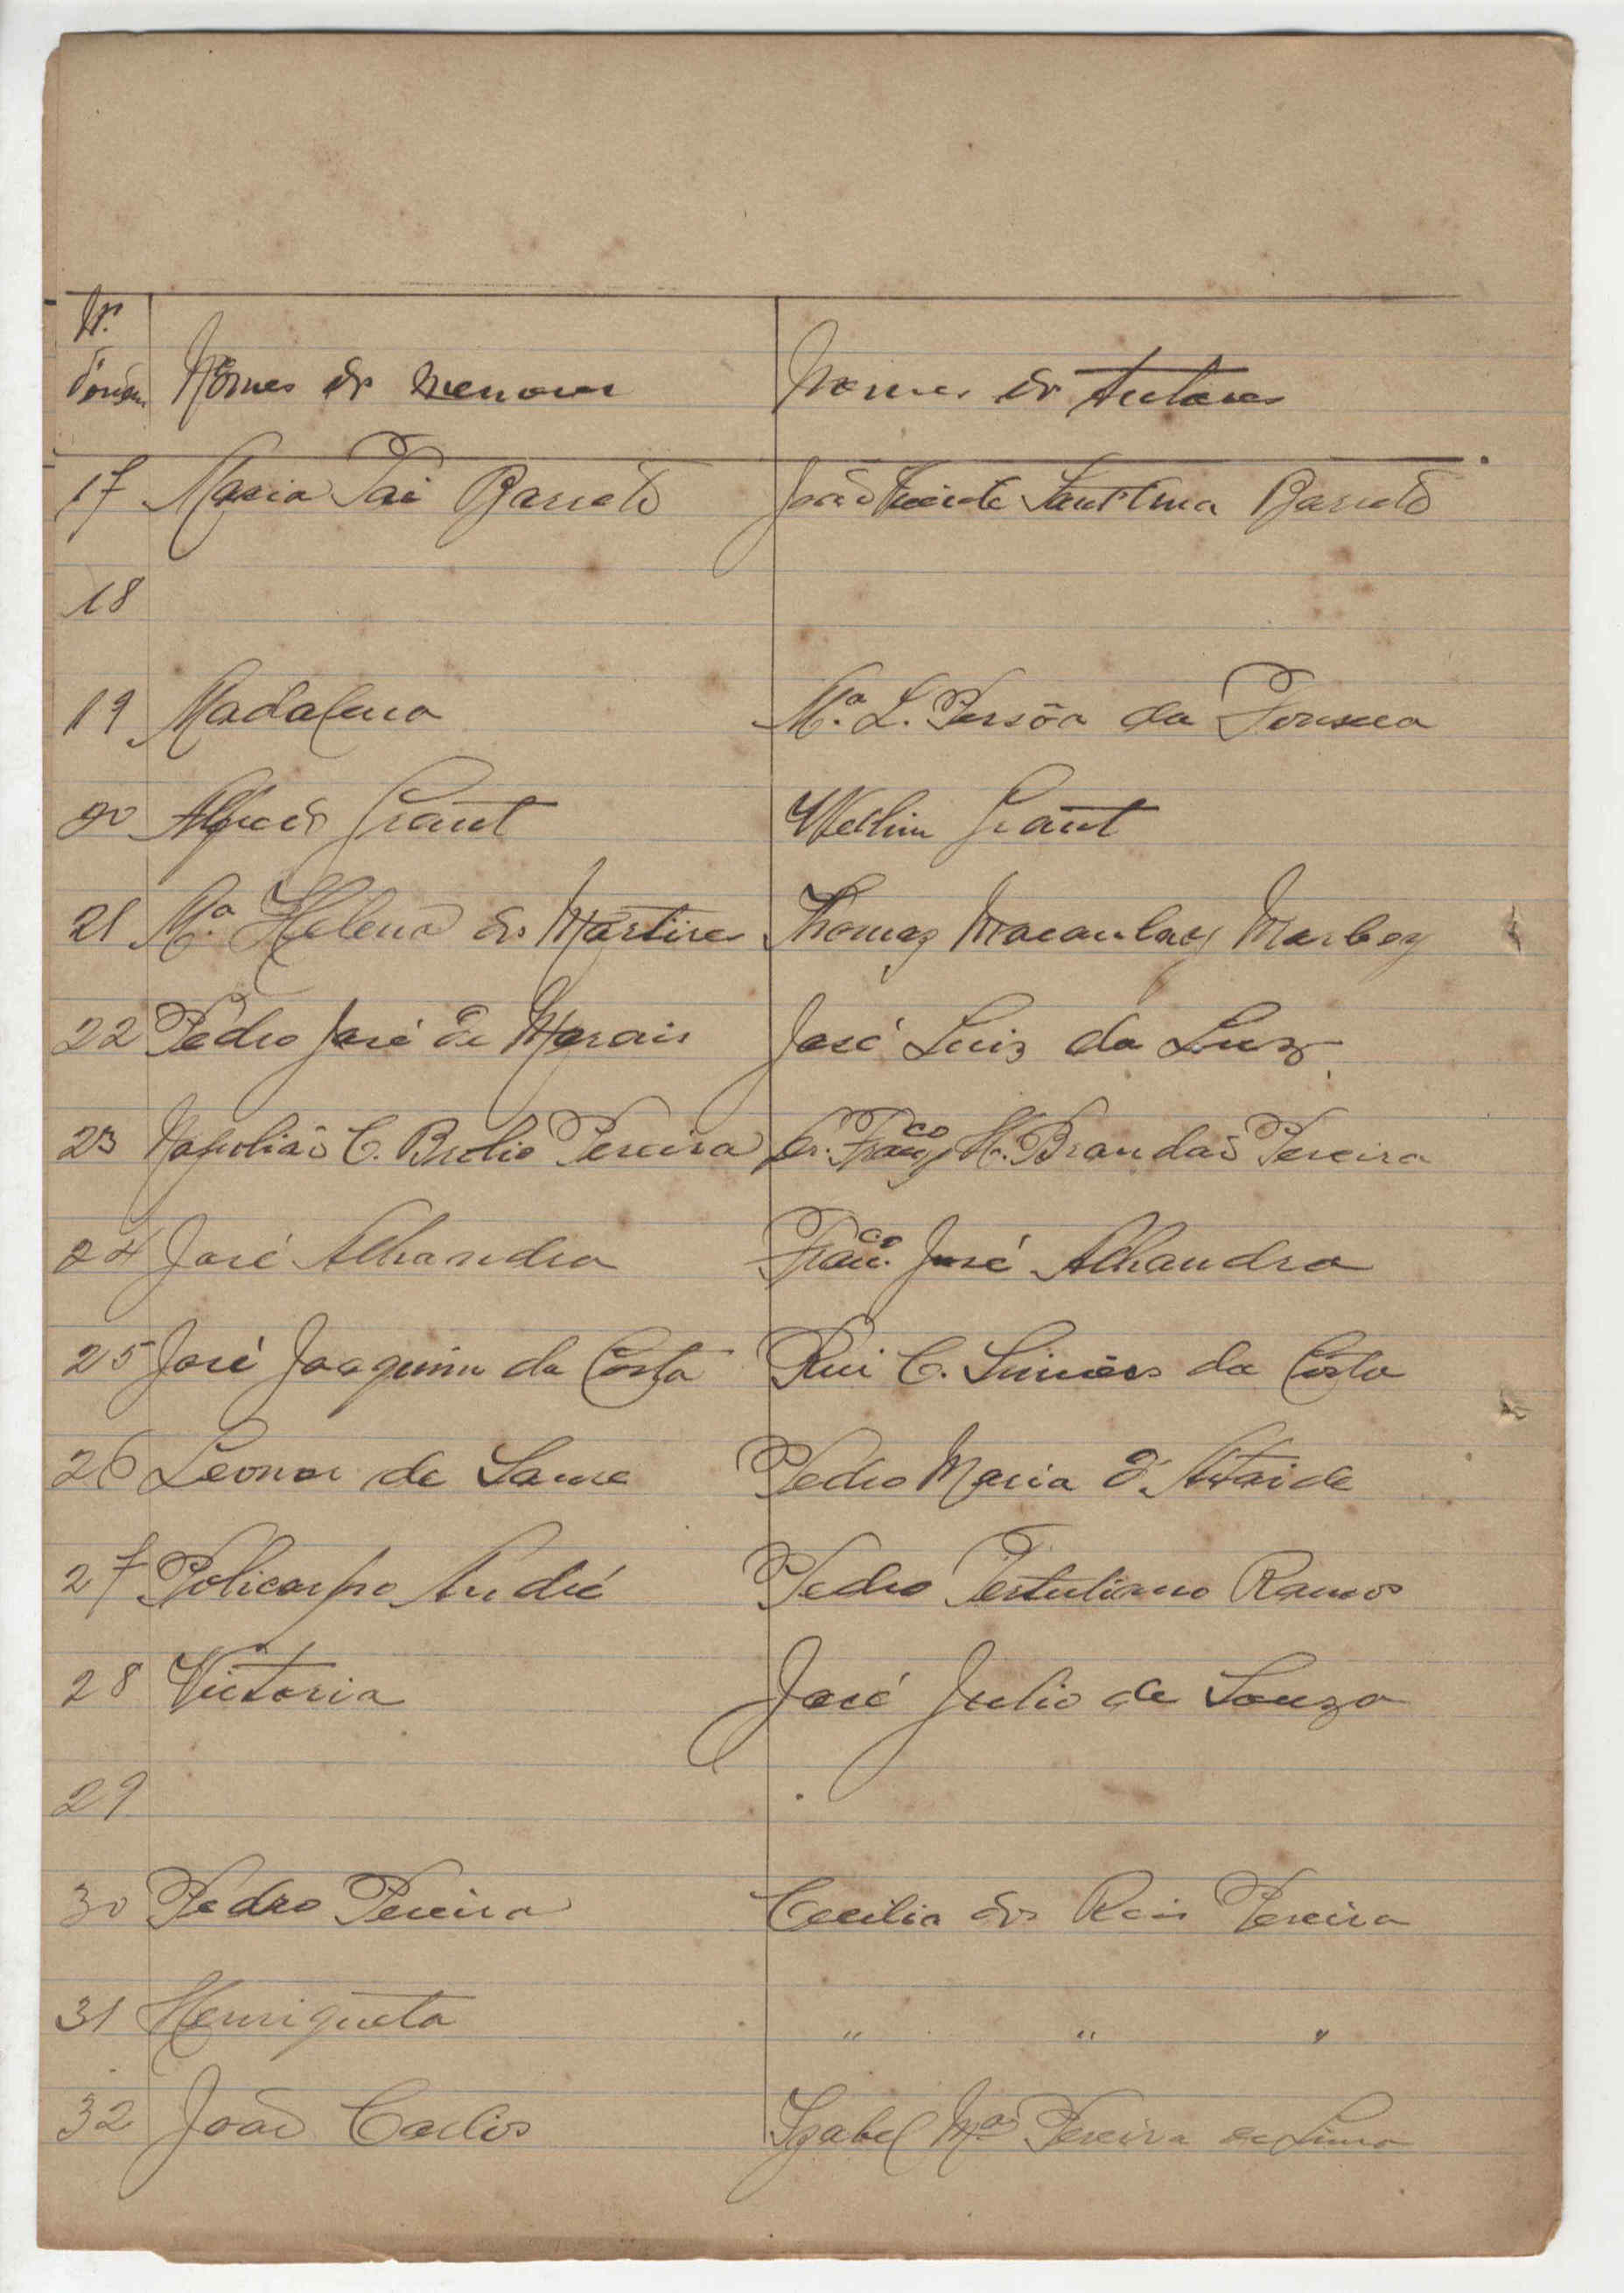 Nº
d'ordem Nomes dos menores Nomes dos tutores
17 Maria Pai Barreto João Vicente Sant'Ana Barreto
18
19 Madalena Mª. L. Persôa da Fonseca
20 Alfredo Grant Grant
21 Mª Helena dos Martires Thomaz Macaulay Marbey
22 Pedro José de Morais José Luiz da Luz
23 Napolião C. Brolio Pereira Dr. Francº H. Brandão Pereira
24 José Alhandra Francº. José Alhandra
25 José Joaquim da Costa Rui C. Simões da Costa
26 Leonor de Pedro Maria d'Ataide
27 Policarpo André Pedro Tertuliano Ramos
28 Victoria José Julio de Souza
29
30 Pedro Pereira Cecilia dos Reis Pereira
31 Henriqueta " " "
32 João Carlos Izabel Mª Pereira de Lima